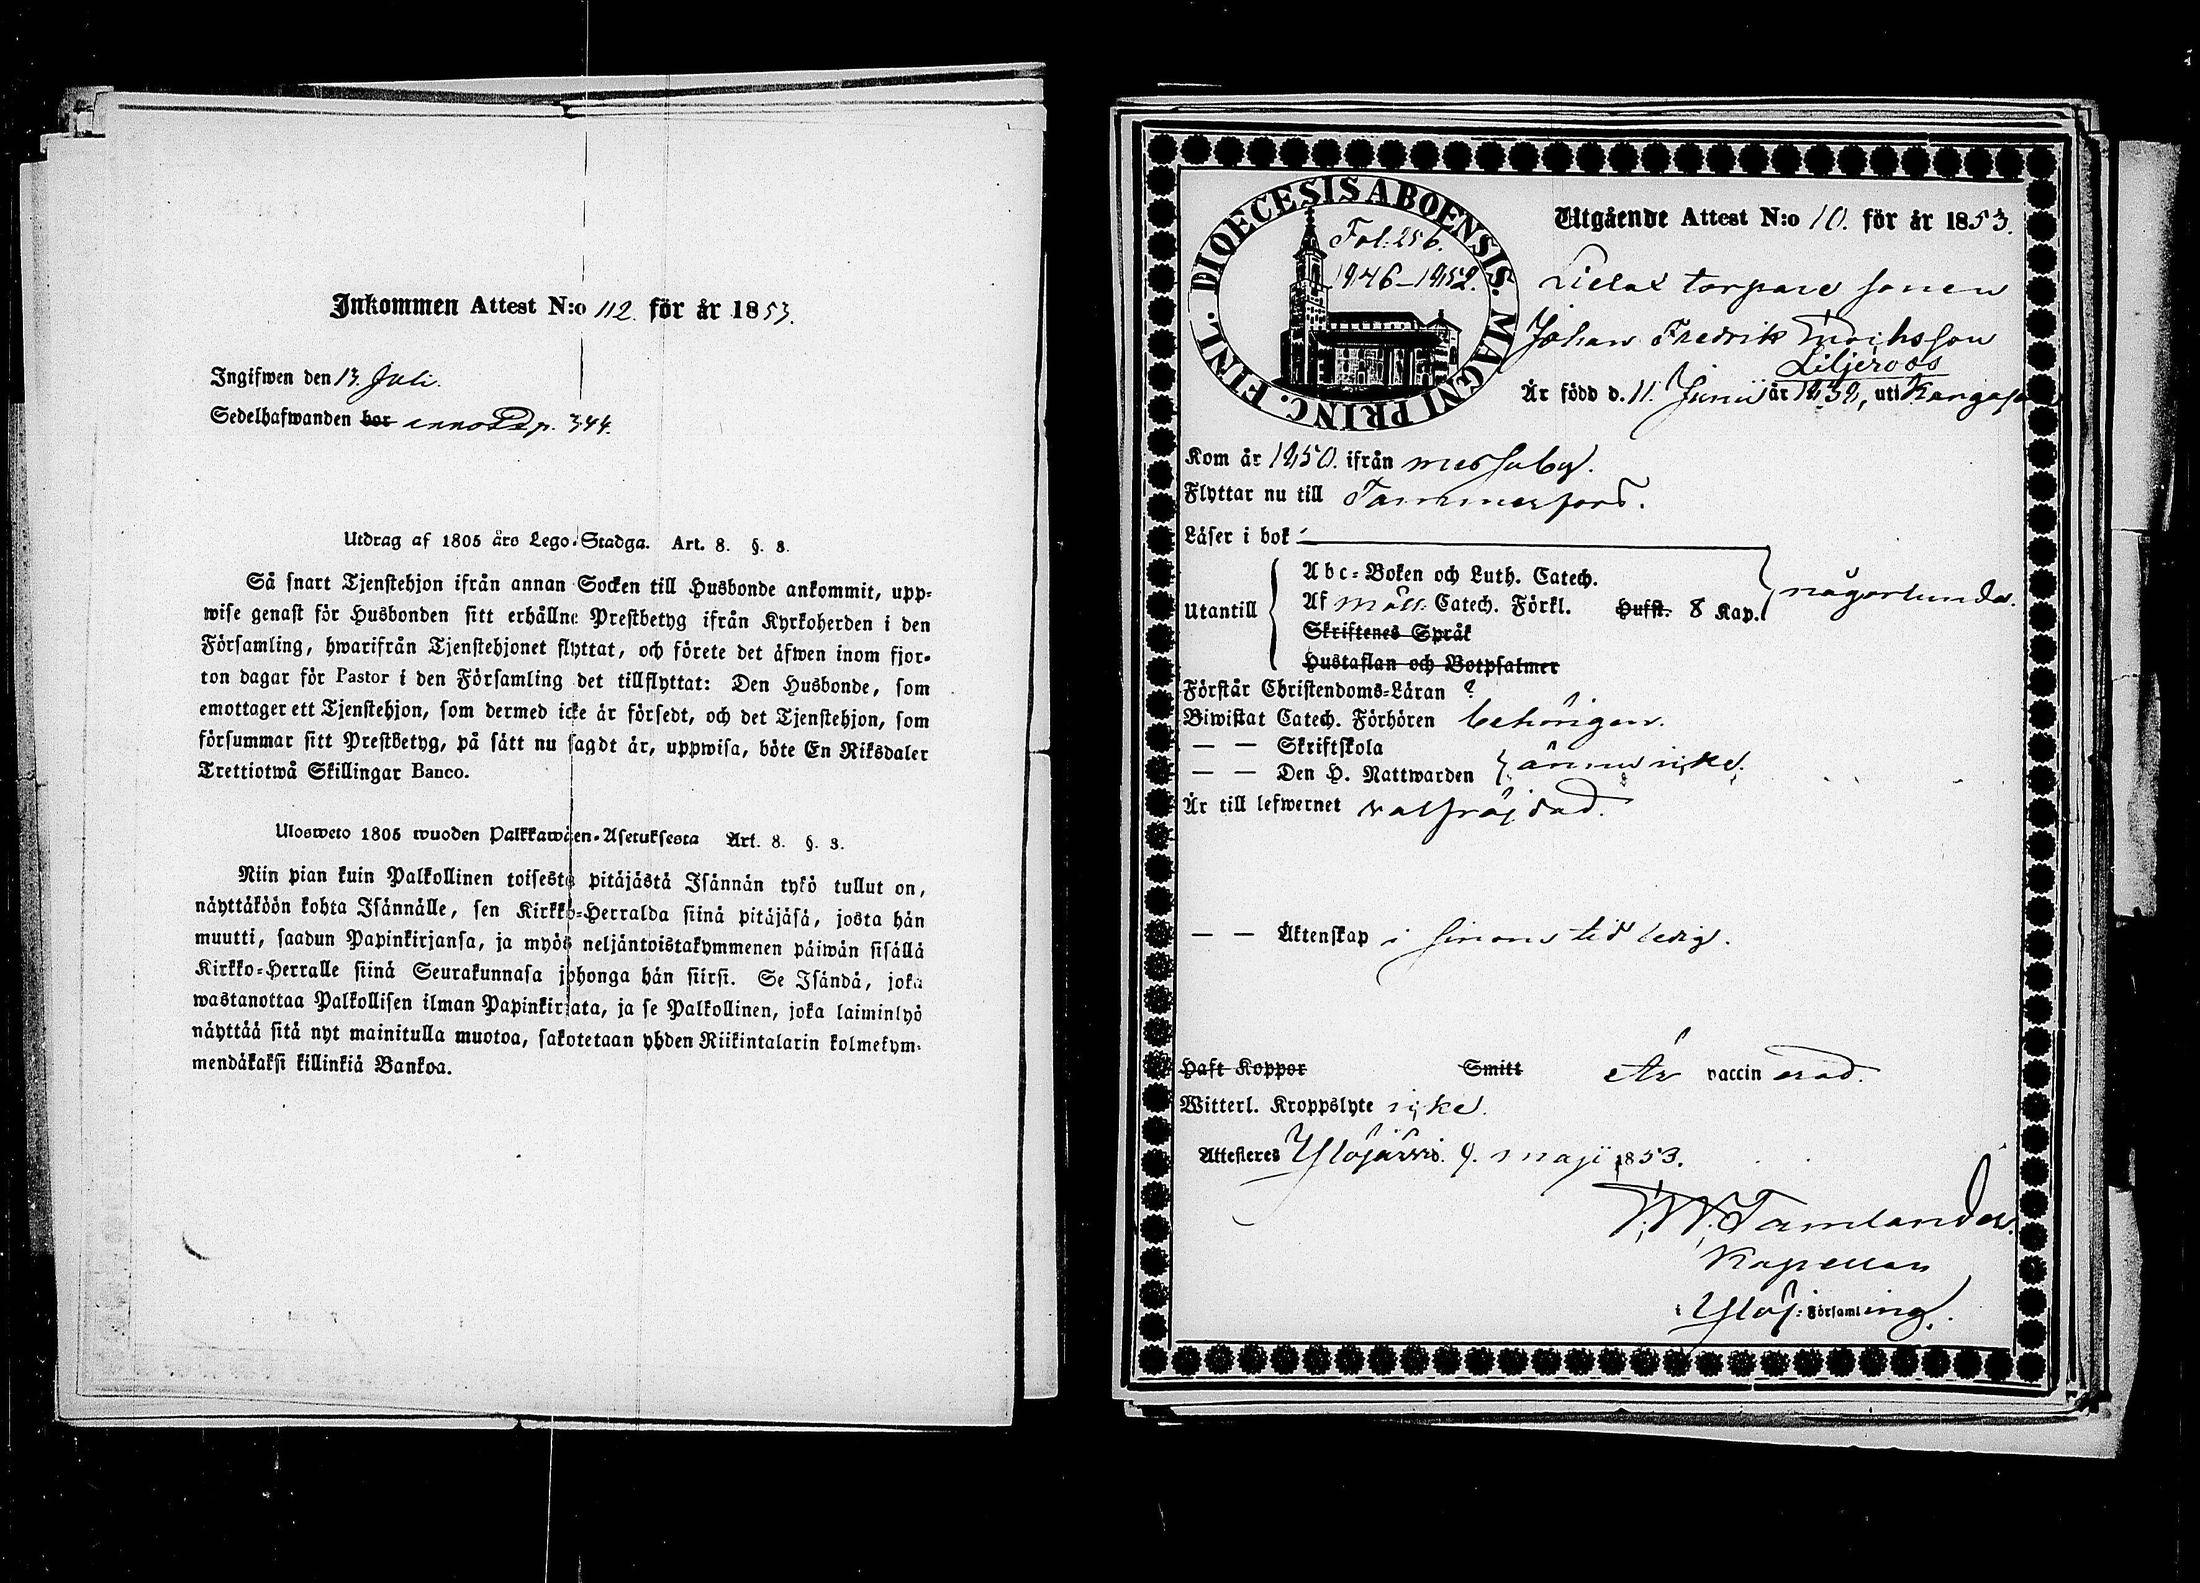 Inkommen Attest N:o 112. för år 1853.
Ingifwen den 13. Juli.
Sedelhafwanden bor p. 344.
Utdrag af 1805 års Lego-Stadga. Art. 8. §. 3.
Så snart Tjenstehjon ifrån annan Socken till Husbonde ankommit, upp-
wise genast för Husbonden sitt erhållne Prestbetyg ifrån Kyrkoherden i den
Församling, hwarifrån Tjenstehjonet flyttat, och förete det äfwen inom fjor-
ton dagar för Pastor i den Församling det tillflyttat: Den Husbonde, som
emottager ett Tjenstehjon, som dermed icke är försedt, och det Tjenstehjon, som
försummar sitt Prestbetyg, på sätt nu sagdt är, uppwisa, böte En Riksdaler
Trettiotwå Skillingar Banco.
Ulosweto 1805 wuoden Palkkawäen-Asetuksesta Art. 8. §. 3.
Niin pian kuin Palkollinen toisesta pitäjästä Isännän tykö tullut on,
näyttäköön kohta Isännälle, sen Kirkko-Herralda siinä pitäjäsä, josta hän
muutti, saadun Papinkirjansa, ja myös neljäntoistakymmenen päiwän sisällä
Kirkko-Herralle siinä Seurakunnasa johonga hän siirsi. Se Isändä, joka
wastanottaa Palkollisen ilman Papinkirjata, ja se Palkollinen, joka laiminlyö
näyttää sitä nyt mainitulla muotoa, sakotetaan yhden Riikintalarin kolmekym-
mendäkaksi killinkiä Bankoa.
DIOECESIS ABOENSIS. MAGNI PRINC. FINL.
Fol: 256.
1846-1852.
Utgående Attest N:o 10. för år 1853.
torpare sonen
Johan Fredrik
Liljeroos
Är född d. 11. Junii år 1838, uti Kangasala
Kom år 1850. ifrån messuby.
Flyttar nu till Tammerfors.
Läser i bok
Utantill
Abc-Boken och Luth. Catech.
Af Möll: Catech. Förkl. Hufst. 8 Kap. någorlunda.
Skriftenes Språk
Hustaflan och Botpsalmer
Förstår Christendoms-Läran ?
Biwistat Catech. Förhören behörigen.
— — Skriftskola
— — Den H. Nattwarden ännu icke.
Är till lefwernet välfräjdad.
— — Äktenskap i sinom tid ledig.
Haft Koppor Smitt Är vaccinerad.
Witterl. Kroppslyte icke.
Attesteres Ylöjärvi. 9. maji 1853.
Tamlander.
Kapellan
i Ylöj: Församling.